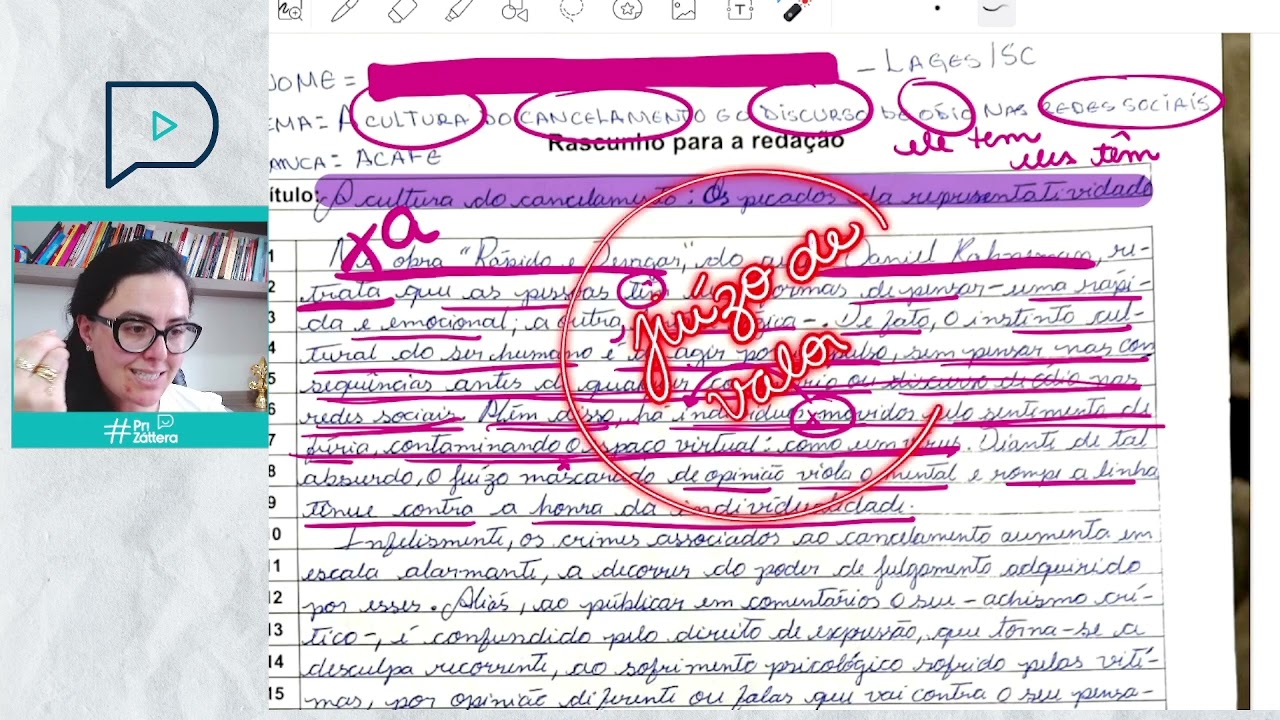 NOME = – LAGES/SC
TEMA = A CULTURA DO CANCELAMENTO E O DISCURSO DE ÓDIO NAS REDES SOCIAIS
ele tem
eles têm
Rascunho para a redação
BANCA = ACAFE
ítulo: A cultura do cancelamento: Os pecados da representatividade
x a
1 Na obra "Rápido e Devagar", do Daniel Kahneman, re-
2 trata que as pessoas têm formas de pensar – uma rápi-
3 da e emocional; a outra, lógica –. De fato, o instinto cul-
4 tural do ser humano é agir por impulso, sem pensar nas con
5 sequências antes de qualquer comentário ou discurso de ódio nas
6 redes sociais. Além disso, há indivíduos movidos pelo sentimento de
7 fúria, contaminando o espaço virtual: como um vírus. Diante de tal
8 absurdo, o juízo mascarado de opinião viola o mental e rompe a linha
9 tênue contra a honra da individualidade.
juízo de
valor
x
x
10 Infelismente, os crimes associados ao cancelamento aumenta em
11 escala alarmante, a decorrer do poder de julgamento adquirido
12 por esses. Aliás, ao públicar em comentários o seu – achismo crí-
13 tico –, é confundido pelo direito de expressão, que torna-se a
14 desculpa recorrente, ao sofrimento psicológico sofrido pelas víti-
15 mas, por opinião diferente ou falas que vai contra o seu pensa-
# Pri
Záttera